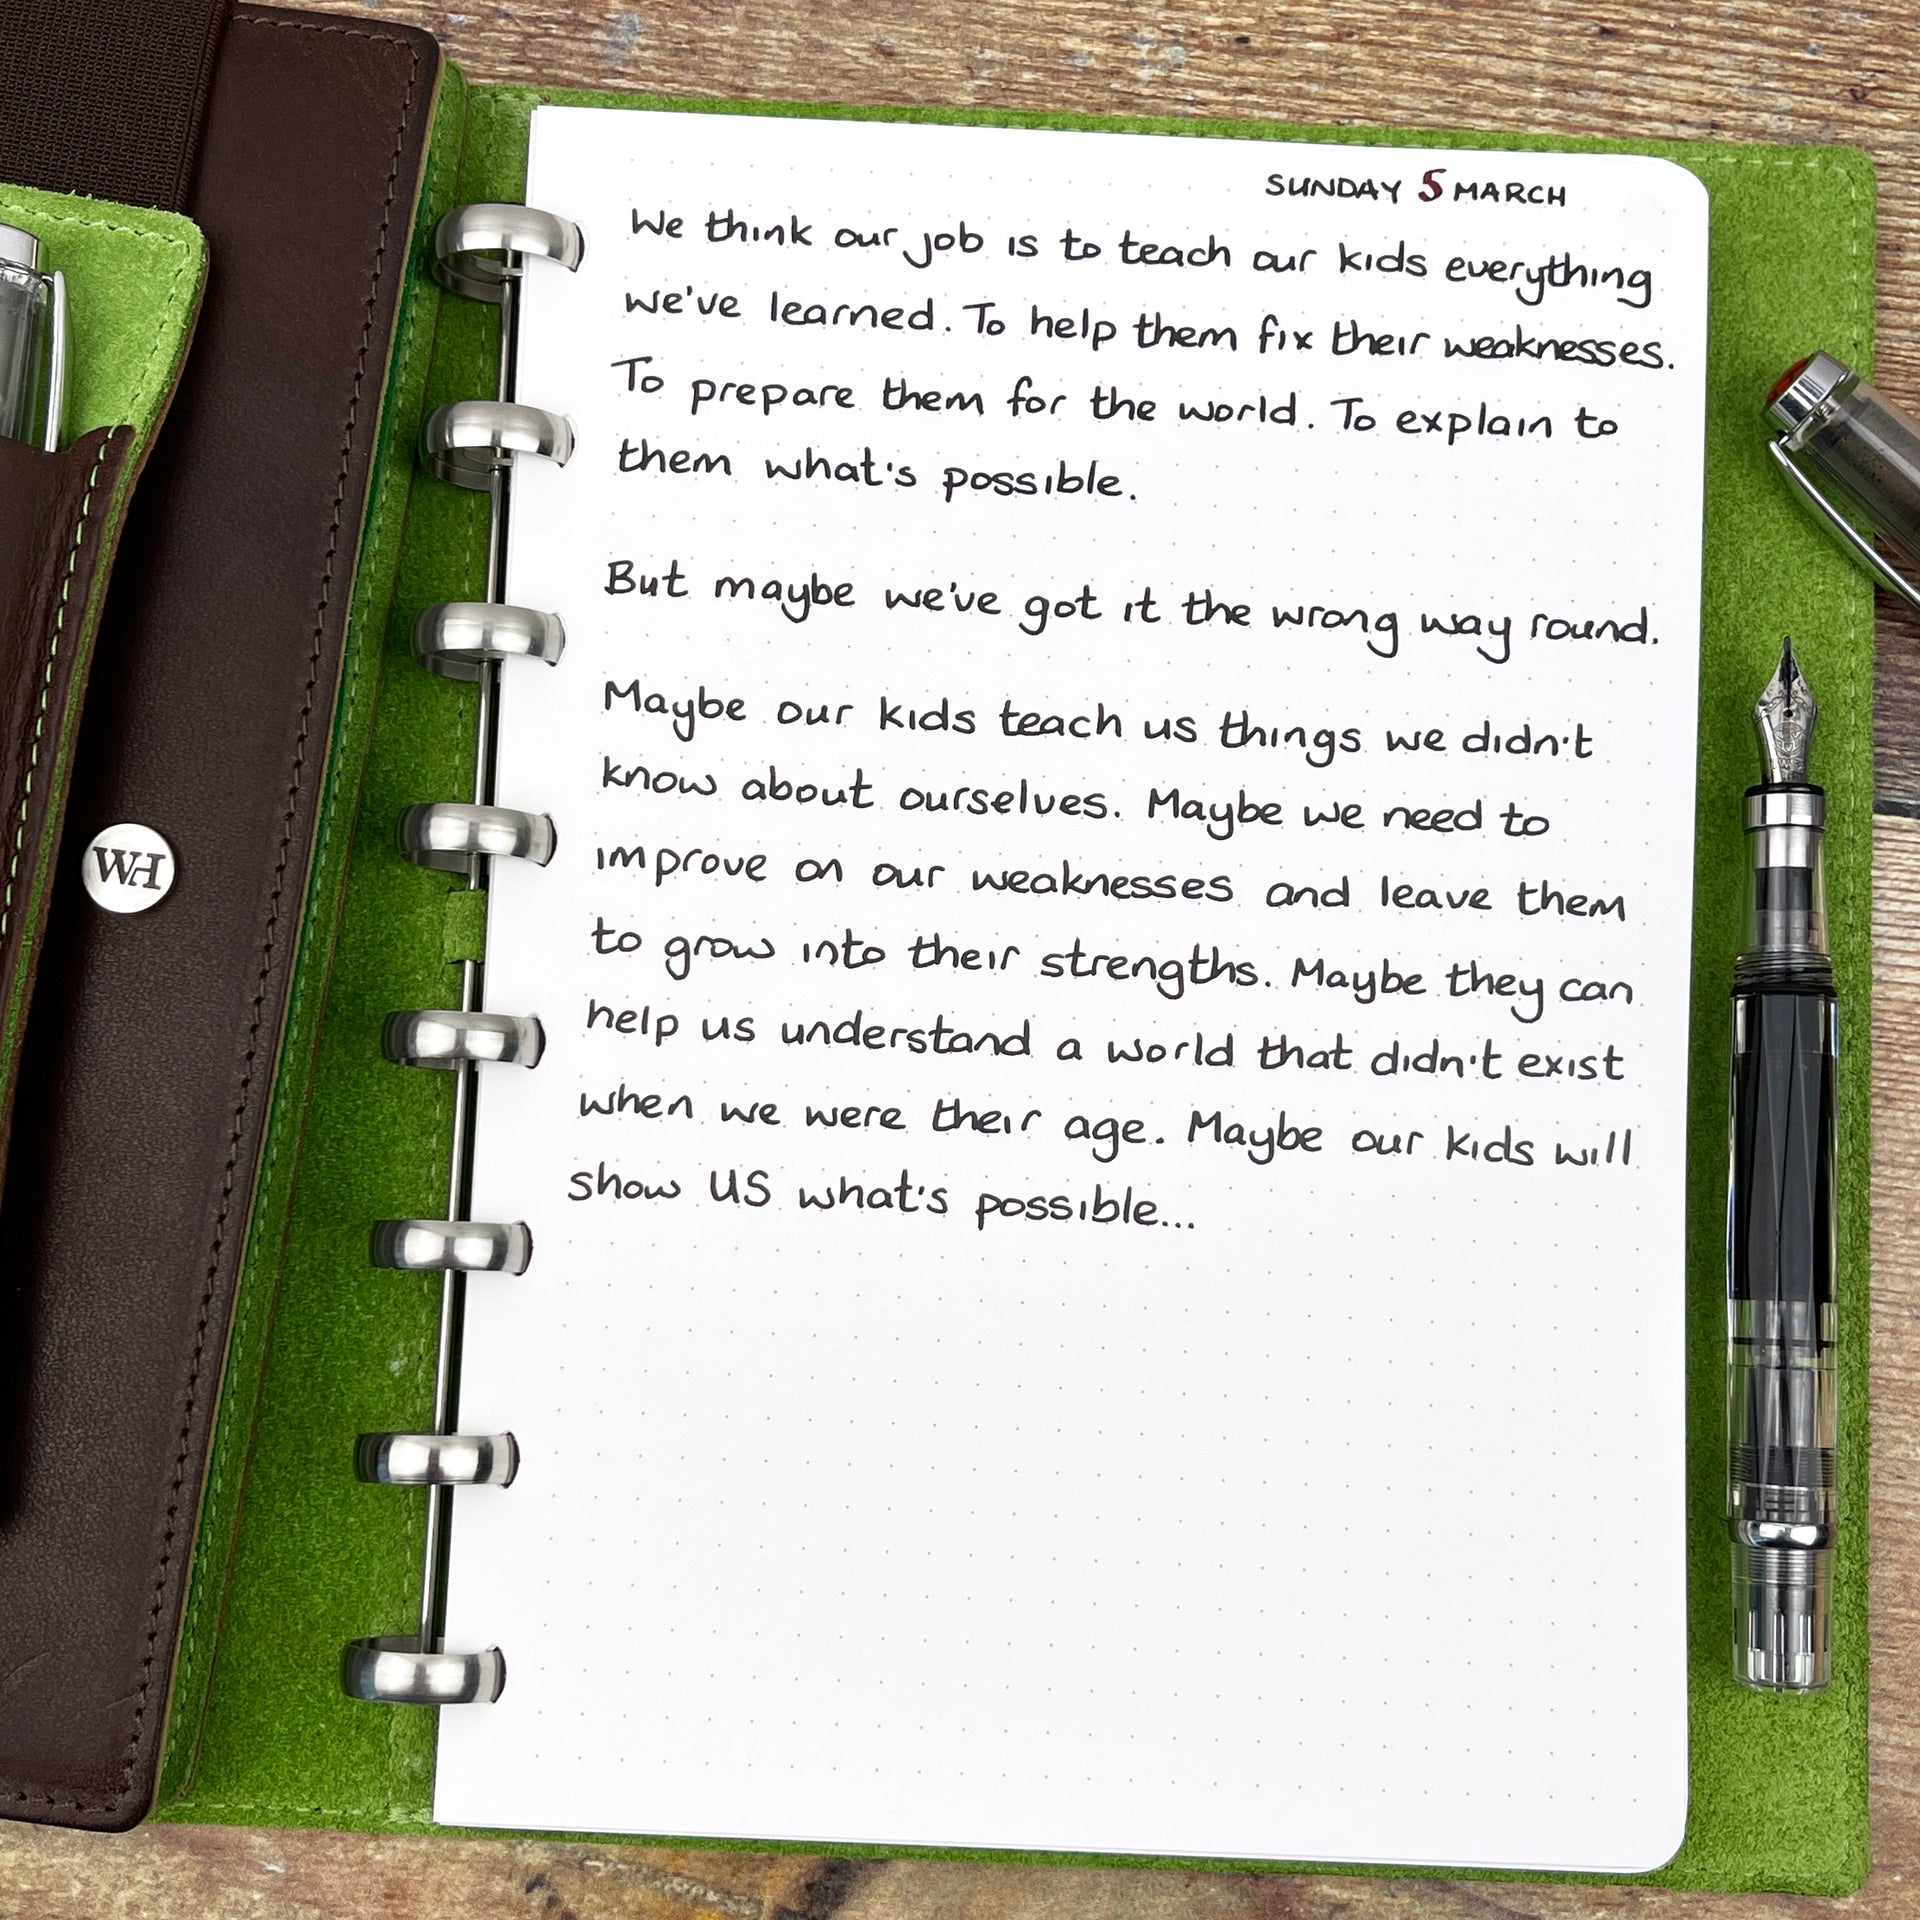 SUNDAY 5 MARCH
We think our job is to teach our kids everything
we've learned. To help them fix their weaknesses.
To prepare them for the world. To explain to
them what's possible.
But maybe we've got it the wrong way round.
Maybe our kids teach us things we didn't
know about ourselves. Maybe we need to
improve on our weaknesses and leave them
to grow into their strengths. Maybe they can
help us understand a world that didn't exist
when we were their age. Maybe our kids will
show US what's possible...
WH